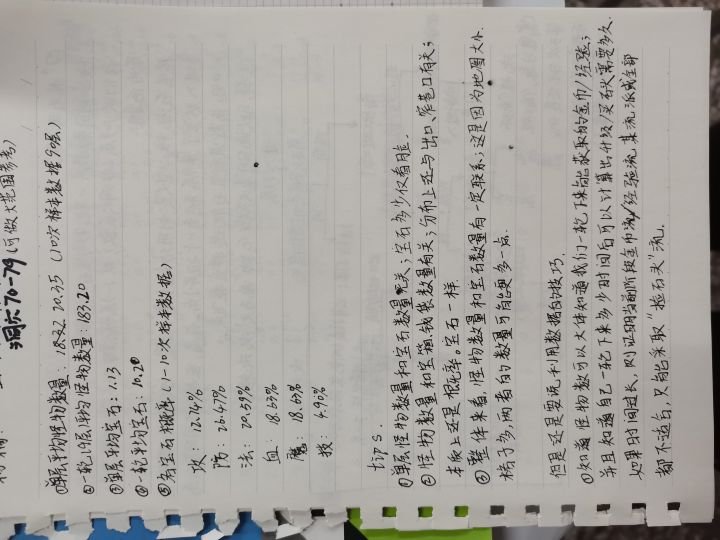 洞穴70-79(可做大范围参考)
①单层平均怪物数量:18.32 20.35(1-10次样本数据90层)
②一轮(9层)平均怪物数量:183.20
③单层平均宝石:1.13
④一轮平均宝石:10.20
⑤各宝石概率(1-10次样本数据)
攻:12.74%
防:26.47%
法:20.59%
血:18.63%
魔:18.63%
技:4.90%
tips.
①单层怪物数量和宝石数量无关;宝石多少仅看脸.
②怪物数量和宝箱、钱袋数量有关;分布上还与出口、窄巷口有关;
本质上还是概率。宝石一样
③整体来看,怪物数量和宝石数量有一定联系;这是因为地图大.
格子多,两者的数量可能更多一点.
但是还是要说一利用数据的技巧.
①知道怪物数可以大体知道我们一轮下来能获取的金币/经验;
并且知道自己一轮下来多少时间后可以计算出升级/买石头需要多久.
如果时间过长,则证明当前阶段金币流/经验流 某流派或全部
都不适合,只能采取“捡石头”流.